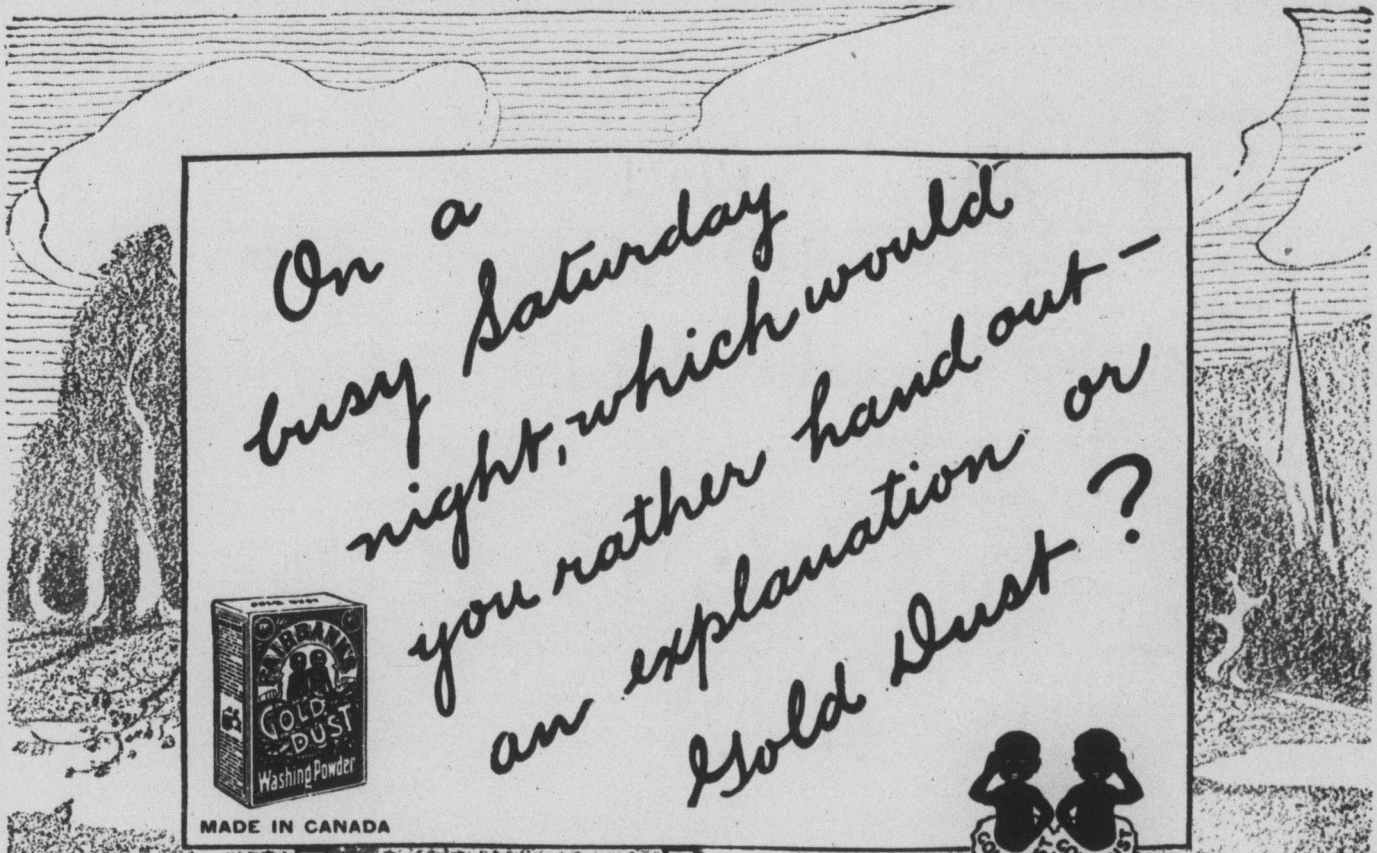 On a
busy Saturday
night, which would
you rather hand out —
an explanation or
Gold Dust ?
GOLD DUST
FAIRBANK'S
GOLD
DUST
Washing Powder
MADE IN CANADA